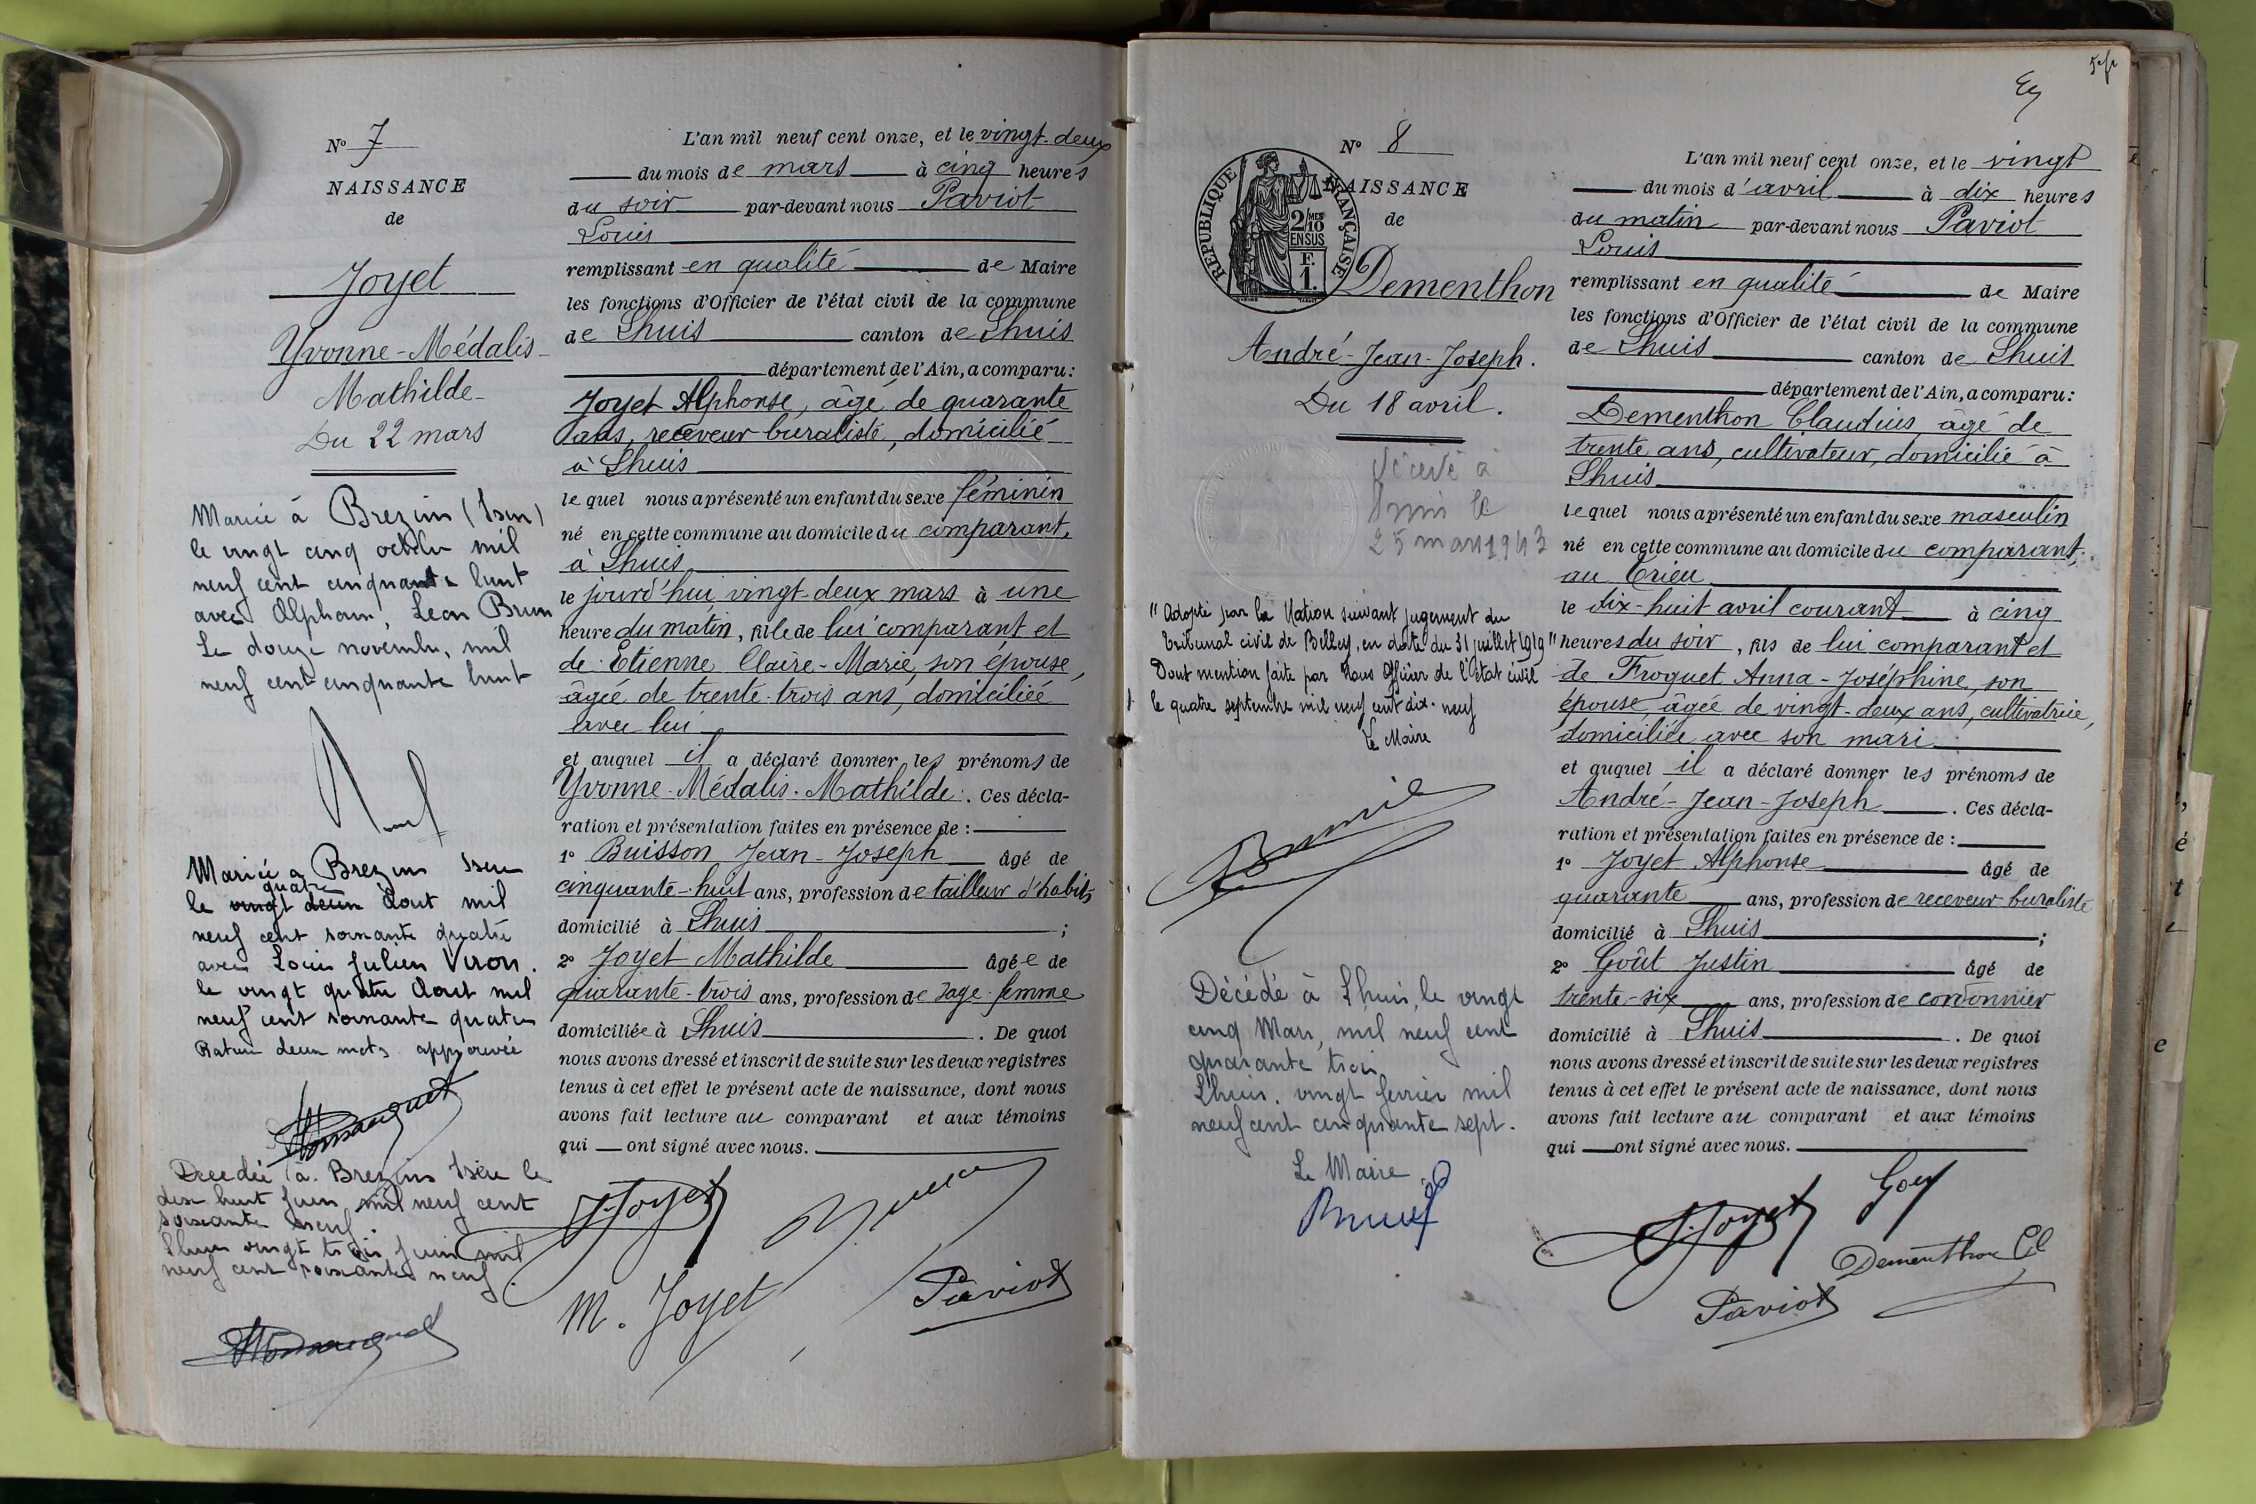 N° 7
NAISSANCE
de
Joyet
Yvonne-Médalis-
Mathilde-
Du 22 mars
Mariée à Brezins (Isère)
le vingt cinq octobre mil
neuf cent cinquante huit
avec Alphonse, Leon Brun
Le douze novembre, mil
neuf cent cinquante huit
Mariée a Brezins Isère
quatre
le vingt deux Aout mil
neuf cent soixante quatre
avec Louis Julien Viron.
le vingt quatre Aout mil
neuf cent soixante quatre
Rature deux mots approuvée
Decedée à Brezins Isère le
dix huit Juin mil neuf cent
soixante neuf.
Lhuis vingt trois Juin mil
neuf cent soixante neuf.
L'an mil neuf cent onze, et le vingt-deux
du mois de mars à cinq heures
du soir par-devant nous Paviot
Louis
remplissant en qualité de Maire
les fonctions d'Officier de l'état civil de la commune
de Lhuis canton de Lhuis
département de l'Ain, a comparu:
Joyet Alphonse, âgé de quarante
ans, receveur buraliste, domicilié
à Lhuis
le quel nous a présenté un enfant du sexe féminin
né en cette commune au domicile du comparant,
à Lhuis
le jourd'hui vingt-deux mars à une
heure du matin, fille de lui comparant et
de Etienne Claire-Marie, son épouse,
âgée de trente-trois ans, domiciliée
avec lui
et auquel il a déclaré donner les prénoms de
Yvonne-Médalis-Mathilde. Ces décla-
ration et présentation faites en présence de :
1° Buisson Jean-Joseph âgé de
cinquante-huit ans, profession de tailleur d'habits
domicilié à Lhuis ;
2° Joyet Mathilde âgée de
quarante-trois ans, profession de sage-femme
domiciliée à Lhuis . De quoi
nous avons dressé et inscrit de suite sur les deux registres
tenus à cet effet le présent acte de naissance, dont nous
avons fait lecture au comparant et aux témoins
qui ont signé avec nous.
Joyet
M. Joyet
Paviot
N° 8
NAISSANCE
de
REPUBLIQUE FRANÇAISE
2/10 MES
EN SUS
F.
1.
Dementhon
André-Jean-Joseph.
Du 18 avril.
décédé à
Lhuis le
25 mars 1943
"Adopté par la Nation suivant jugement du
tribunal civil de Belley, en date du 31 juillet 1919"
Dont mention faite par Nous Officier de l'état civil
le quatre septembre mil neuf cent dix-neuf
Le Maire
Décédé à Lhuis, le vingt
cinq Mars, mil neuf cent
quarante trois
Lhuis. vingt fevrier mil
neuf cent cinquante sept.
Le Maire
L'an mil neuf cent onze, et le vingt
du mois d'avril à dix heures
du matin par-devant nous Paviot
Louis
remplissant en qualité de Maire
les fonctions d'Officier de l'état civil de la commune
de Lhuis canton de Lhuis
département de l'Ain, a comparu:
Dementhon Claudius, âgé de
trente ans, cultivateur, domicilié à
Lhuis
le quel nous a présenté un enfant du sexe masculin
né en cette commune au domicile du comparant,
au Crieu
le dix-huit avril courant à cinq
heures du soir, fils de lui comparant et
de Froquet Anna-Joséphine, son
épouse âgée de vingt-deux ans, cultivatrice,
domiciliée avec son mari
et auquel il a déclaré donner les prénoms de
André-Jean-Joseph . Ces décla-
ration et présentation faites en présence de :
1° Joyet Alphonse âgé de
quarante ans, profession de receveur buraliste
domicilié à Lhuis ;
2° Goût Justin âgé de
trente-six ans, profession de cordonnier
domicilié à Lhuis . De quoi
nous avons dressé et inscrit de suite sur les deux registres
tenus à cet effet le présent acte de naissance, dont nous
avons fait lecture au comparant et aux témoins
qui ont signé avec nous.
Joyet
Dementhon Cl
Paviot